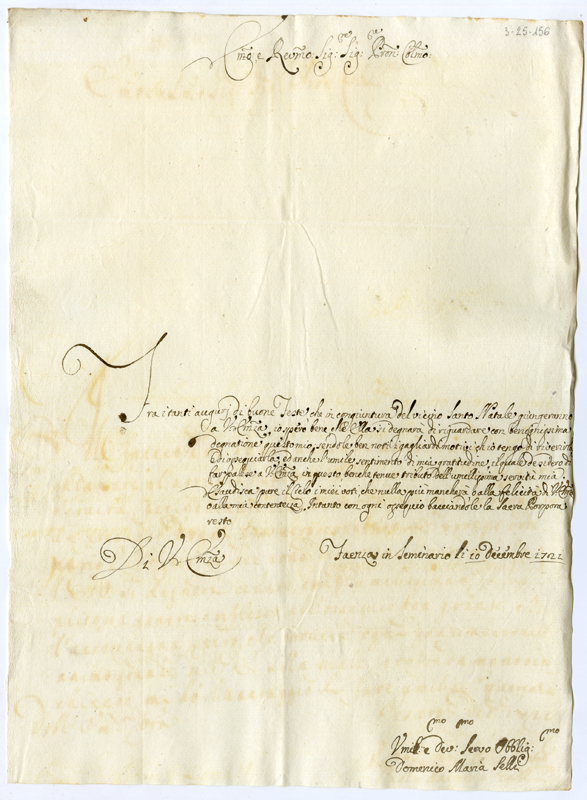 3-25-156
Em̃o, e Revm̃o Sig:re Sig:re Pron Colmo:
Fra i tanti augurj di buone Feste che in congiuntura del vicino Santo Natale giungeranno
a Vr̃a Em̃za, io spero bene che Ella si degnarà di riguardare con benignissima
degnatione questo mio, sendole ben noti i gagliardi motivi ch'io tengo di riverirla
ed ossequiarla, ed anche l'umile sentimento di mia gratitudine, il quale desidero di
far palese a Vr̃a Em̃za, in questo benche tenue tributo dell'umilissima servitù mia.
Esaudisca pure il Cielo i miei voti, che nulla più mancherà ò alla felicità di Vr̃a Em̃za
ò alla mia contentezza. Intanto con ogni ossequio bacciandole la Sacra Porpora
resto
Di Vr̃a Em̃za
Faenza in Seminario li 10 Decembre 1721
Umil:mo e Dev:mo Servo Obblig:mo
Domenico Maria Selli